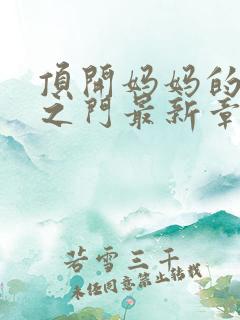 頂開妈妈的
之门最新章
若雪三千
未经同意禁止转载